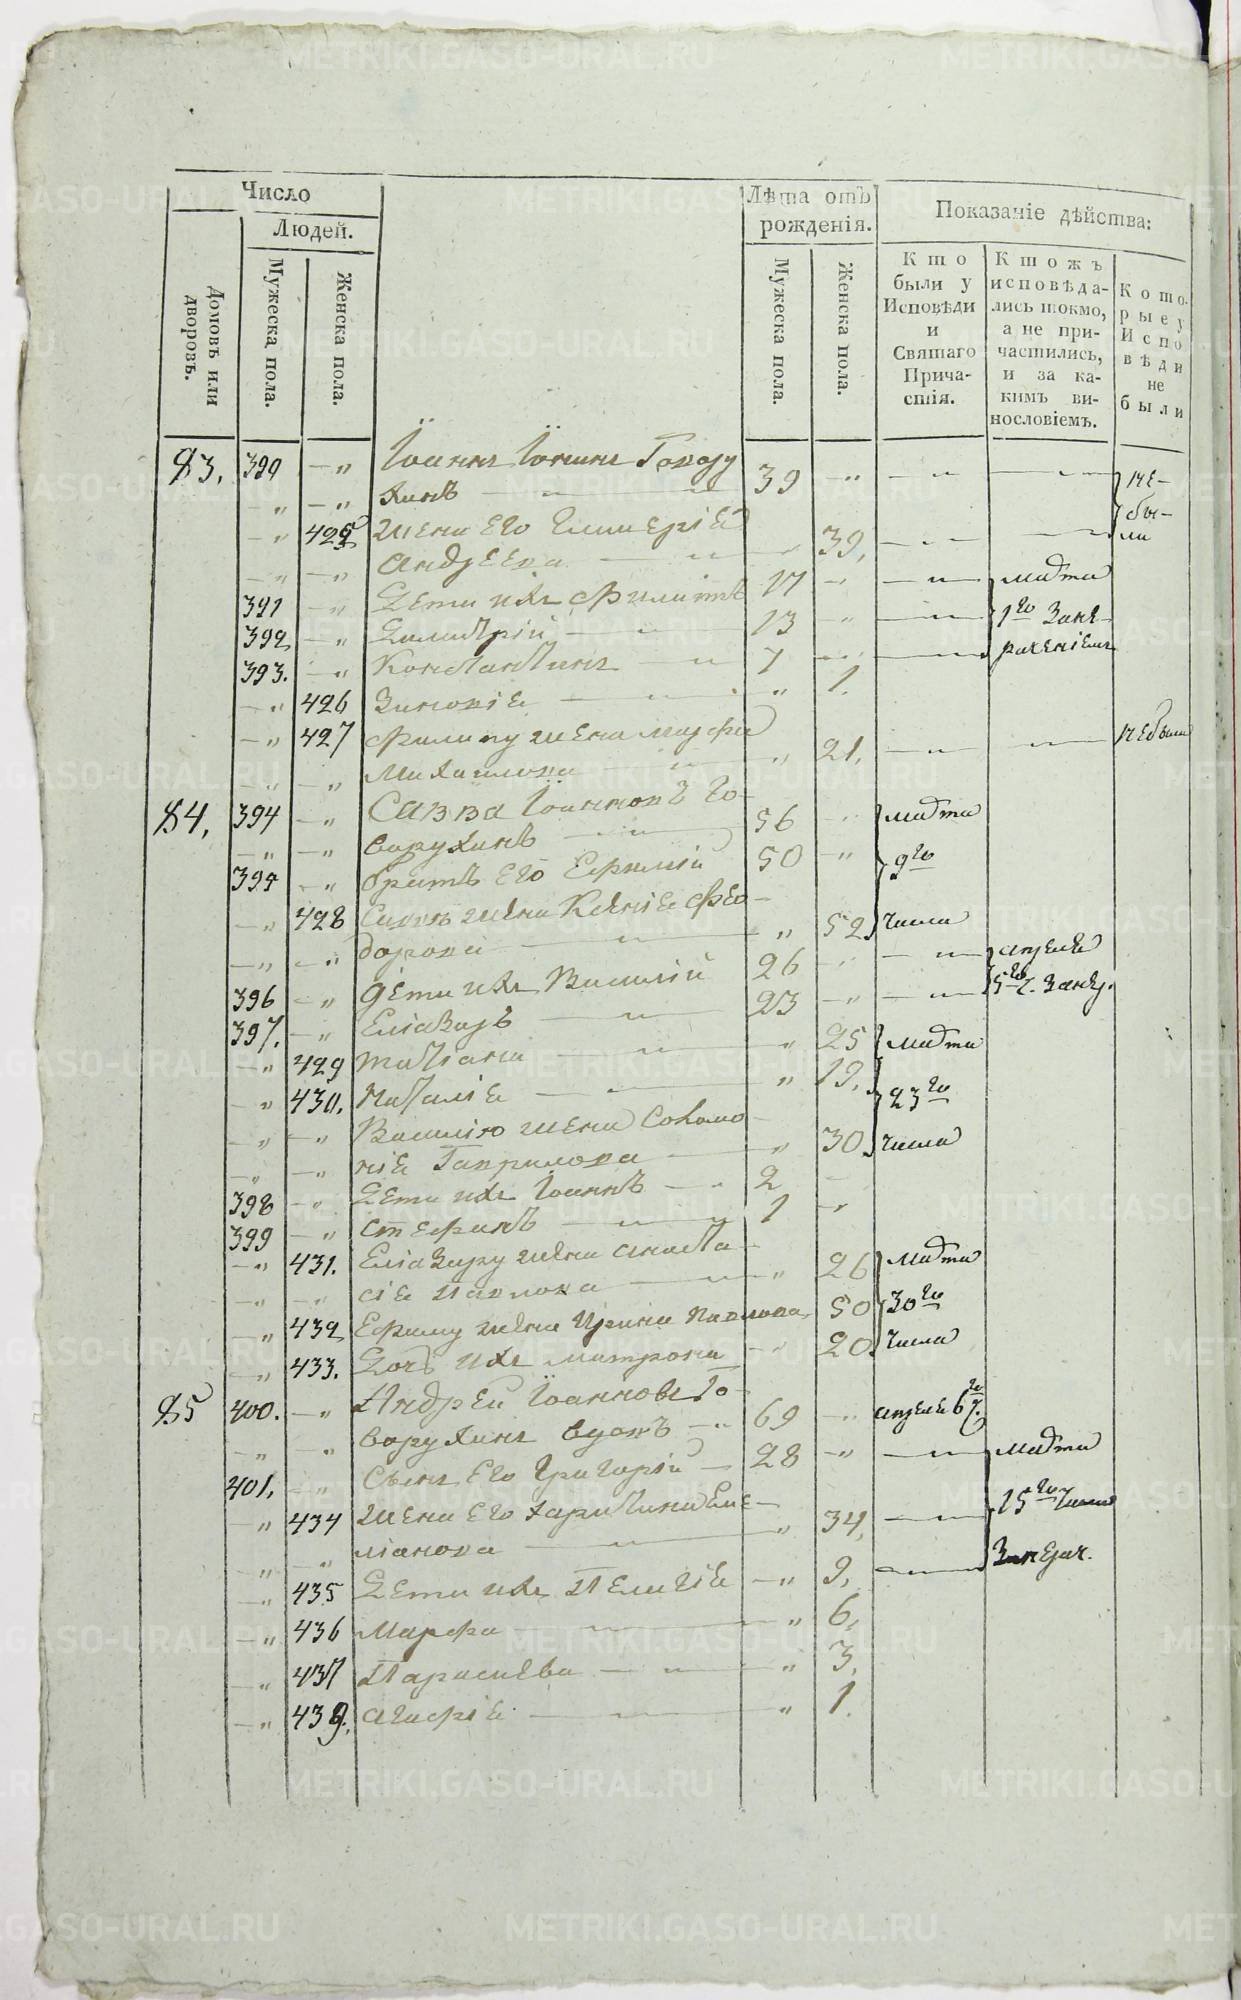 Число
Людей.
Лѣта отъ рожденія.
Показаніе дѣйства:
Домовъ или дворовъ.
Мужеска пола.
Женска пола.
Мужеска пола.
Женска пола.
Кто были у Исповѣди и Святаго Причастія.
Ктожъ исповѣдались токмо, а не причастились, и за какимъ винословіемъ.
Которые у Исповѣди не были
83. 390 — „ Іоаннъ Іонинъ Говору 39 „ не-
„ — „ хинъ бы-
„ 425 жена его Гликерія 39, ли
„ — „ Андреева
391 „ Дети ихъ Филиппъ 17 марта
392 „ Димитрій 13 1го
393. „ Константинъ 7
„ 426 Зиновія „ 1.
„ 427 Филипу жена Марфа не были
„ „ Михаилова „ 21,
84, 394 „ Савва Іоанновъ Го- марта
„ „ ворухинъ 56
395 „ братъ его Ефимій 50 9го
„ 428 Саввы жена Ксенія Фео-
„ „ дорова „ 52 числа апреля
396 „ дети ихъ Василій 26 5го
397. „ Еліазаръ 23
„ 429 Татіана „ 25 марта
„ 430. Наталія „ 19, 23го
„ „ Василію жена Соломо
„ „ нія Гаврилова „ 30 числа
398 „ Дети ихъ Іоаннъ 2
399 „ Стефанъ 1
„ 431. Еліазару жена Анаста- марта
„ „ сія Павлова „ 26
„ 432 Ефиму жена Ирина Павлова 50 30го
„ 433. Дочь ихъ Матрона 20. числа
85 400. „ Андрей Іоанновъ Го- апреля 6го
„ „ ворухинъ вдовъ 69
401. „ Сынъ его Григорій 28 марта
„ 434 жена его Харитина Еме- 15го числа
„ „ ліанова „ 34,
„ 435 Дети ихъ Пелагія „ 9,
„ 436 Марфа „ 6,
„ 437 Параскева „ 3,
„ 438. Агафія „ 1.
METRIKI.GASO-URAL.RU